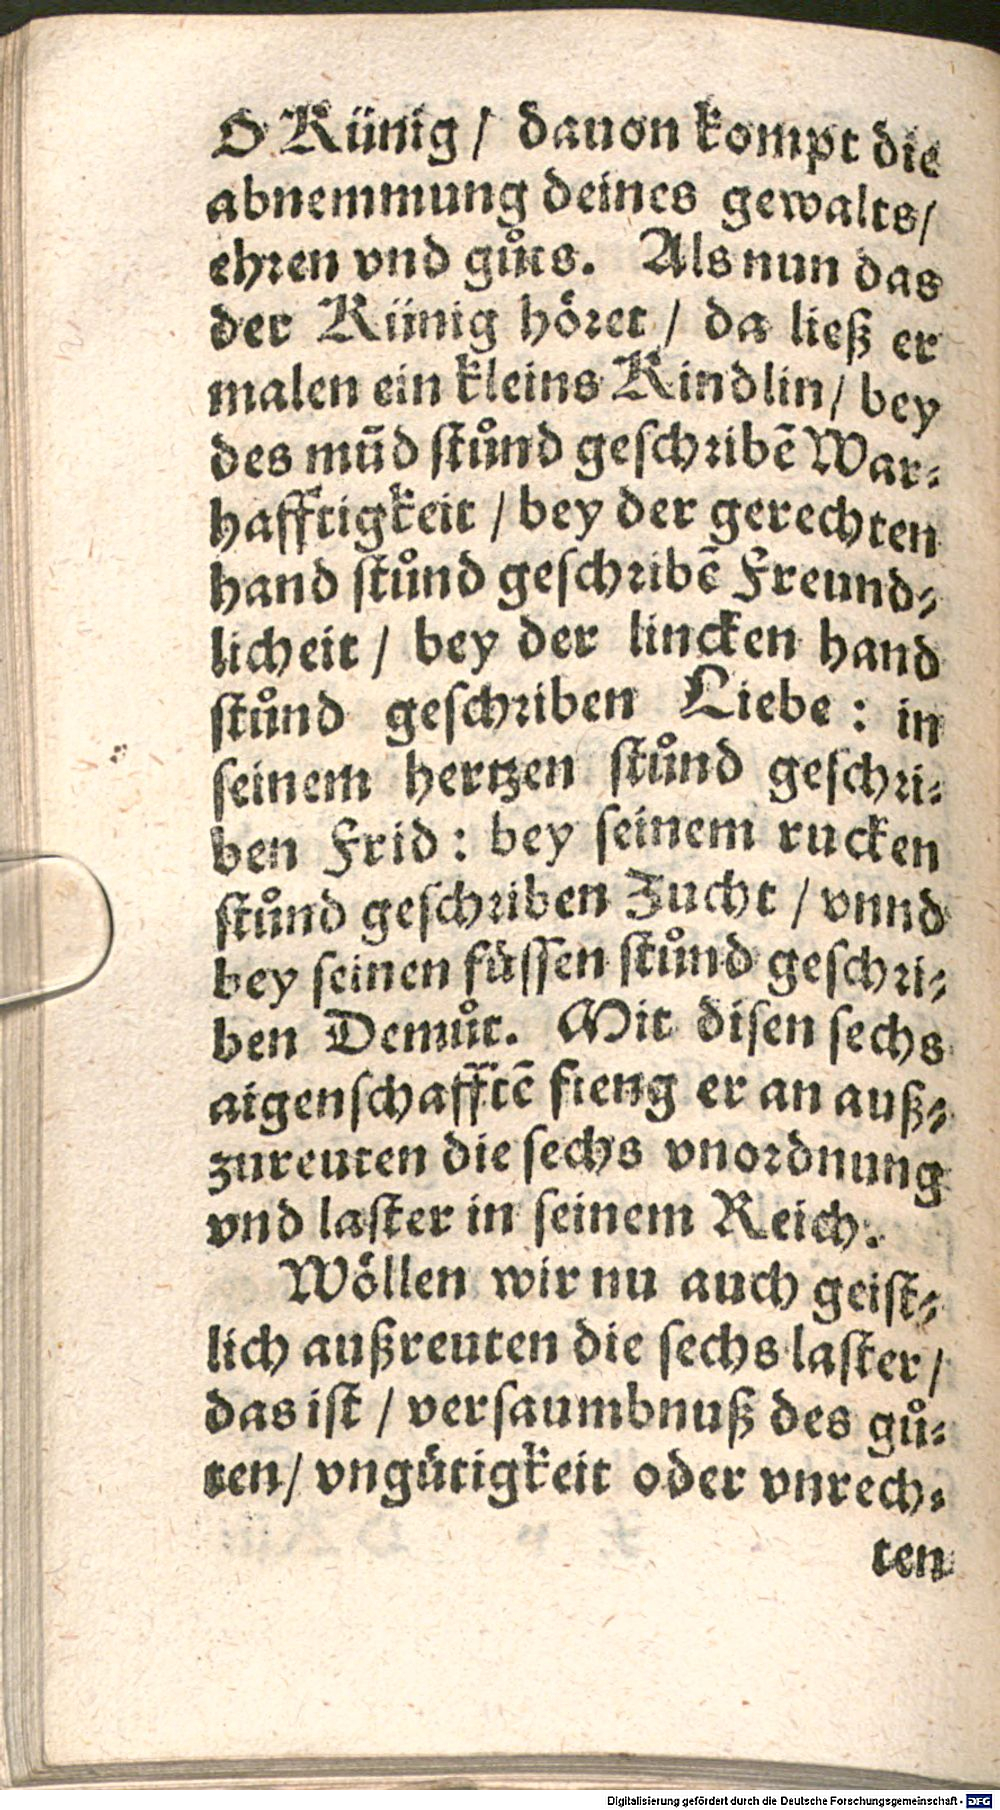 O Künig / dauon kompt die
abnemmung deines gewalts/
ehren vnd gůts. Als nun das
der Künig höret / da ließ er
malen ein kleins Kindlin / bey
des mūd stůnd geschribē War-
hafftigkeit / bey der gerechten
hand stůnd geschribē Freund-
licheit / bey der lincken hand
stůnd geschriben Liebe : in
seinem hertzen stůnd geschri-
ben Frid : bey seinem rucken
stůnd geschriben Zucht / vnnd
bey seinen füssen stůnd geschri-
ben Demůt. Mit disen sechs
aigenschafftē fieng er an auß-
zureuten die sechs vnordnung
vnd laster in seinem Reich.
Wöllen wir nu auch geist-
lich außreuten die sechs laster /
das ist / versaumbnuß des gů-
ten / vngütigkeit oder vnrech-
ten
Digitalisierung gefördert durch die Deutsche Forschungsgemeinschaft - DFG